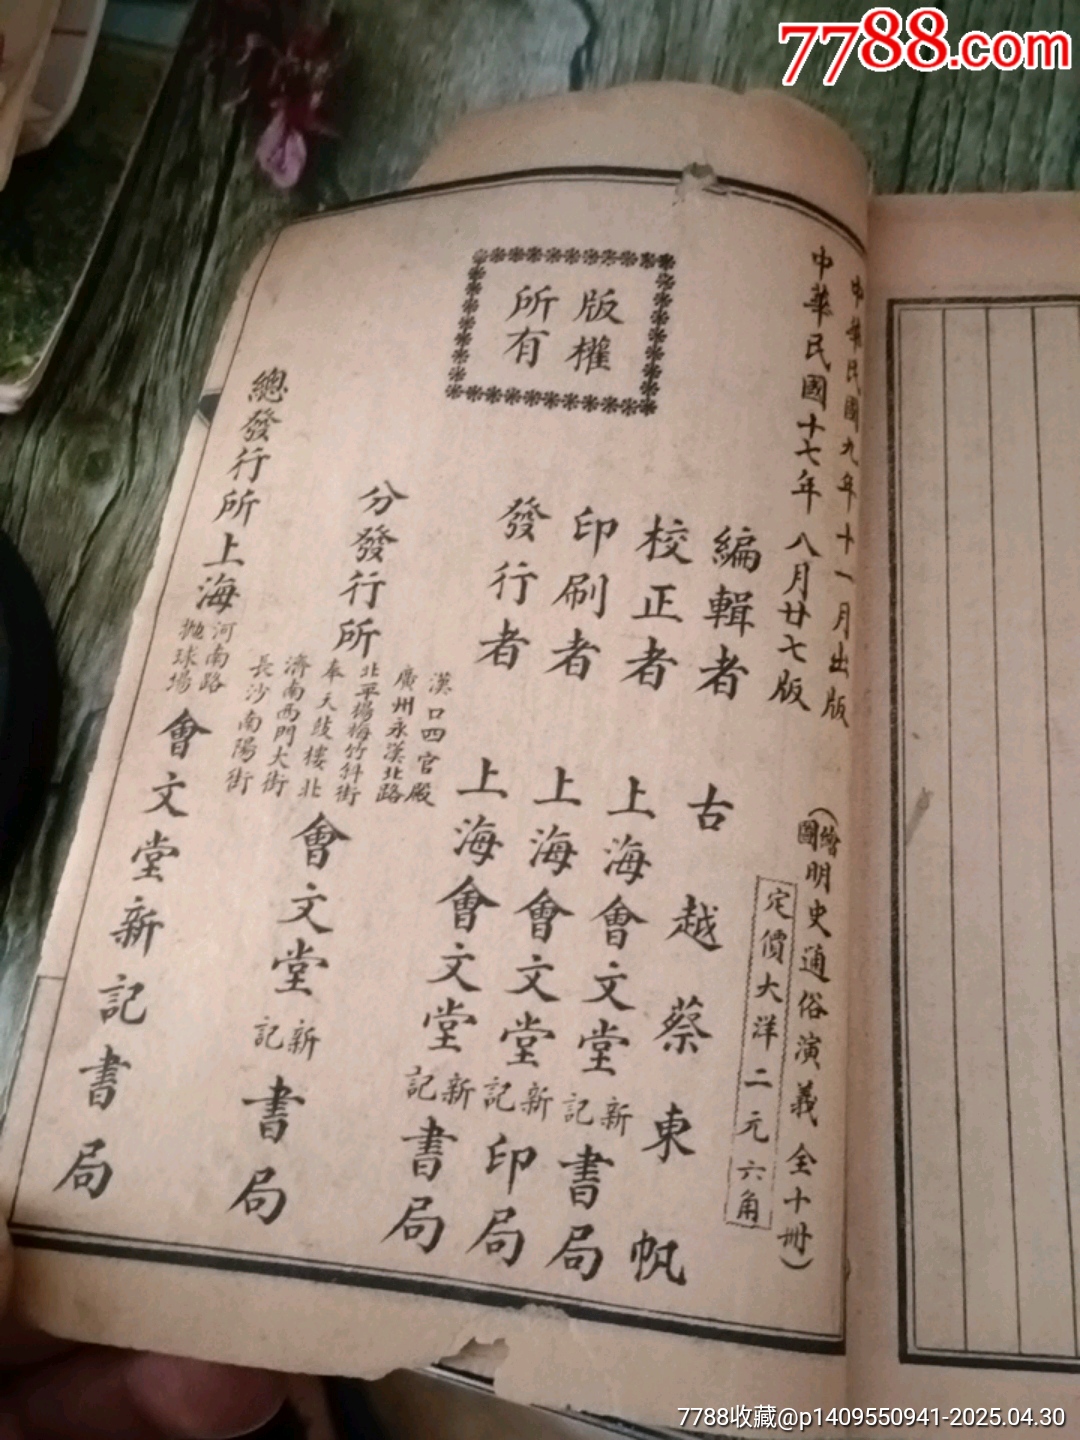 7788.com
中華民國九年十一月出版
中華民國十七年八月廿七版
(繪圖明史通俗演義全十冊)
定價大洋二元六角
版權所有
編輯者 古越蔡東帆
校正者 上海會文堂新記書局
印刷者 上海會文堂新記印局
發行者 上海會文堂新記書局
分發行所
漢口四官殿
廣州永漢北路
北平楊梅竹斜街
奉天鼓樓北
濟南西門大街
長沙南陽街
會文堂新記書局
總發行所上海河南路拋球場會文堂新記書局
7788收藏@p1409550941-2025.04.30